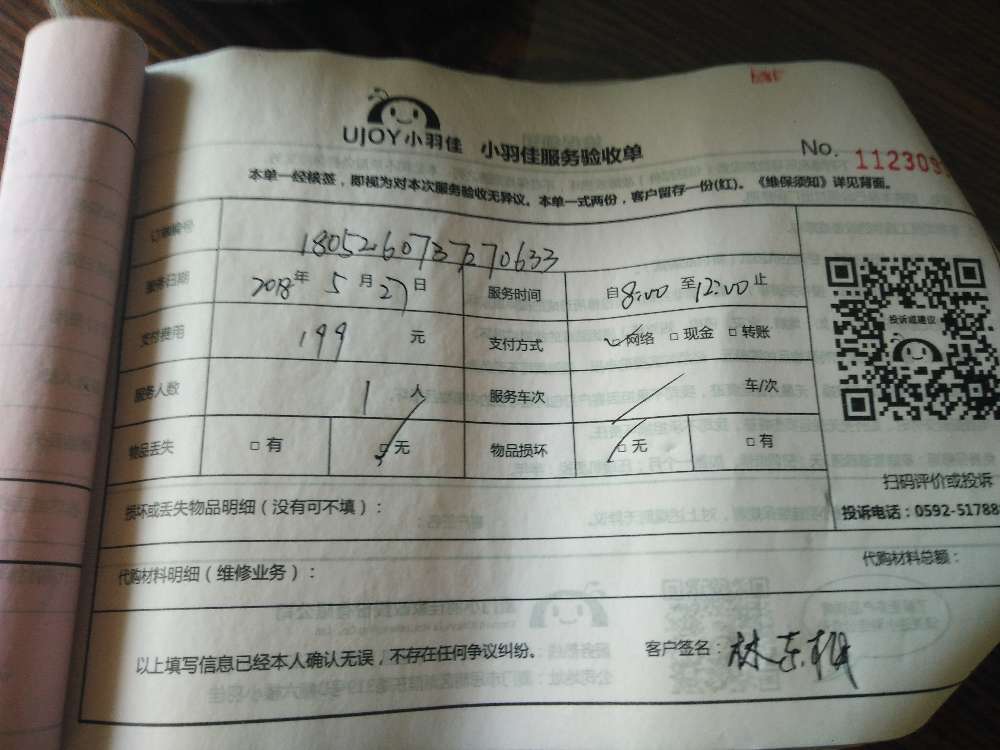 UJOY小羽佳 小羽佳服务验收单 No. 112303
本单一经核签，即视为对本次服务验收无异议。本单一式两份，客户留存一份(红)。《维保须知》详见背面。
订单编号
服务日期 2018年 5月27日 服务时间 自8:00至12:00止
支付费用 199 元 支付方式 网络 □现金 □转账
投诉或建议
服务人数 1 人 服务车次 车/次
物品丢失 □有 □无 物品损坏 □无 □有
扫码评价或投诉
损坏或丢失物品明细（没有可不填）：
投诉电话：0592-51788
代购材料明细（维修业务）：
代购材料总额：
以上填写信息已经本人确认无误，不存在任何争议纠纷。 客户签名：林东